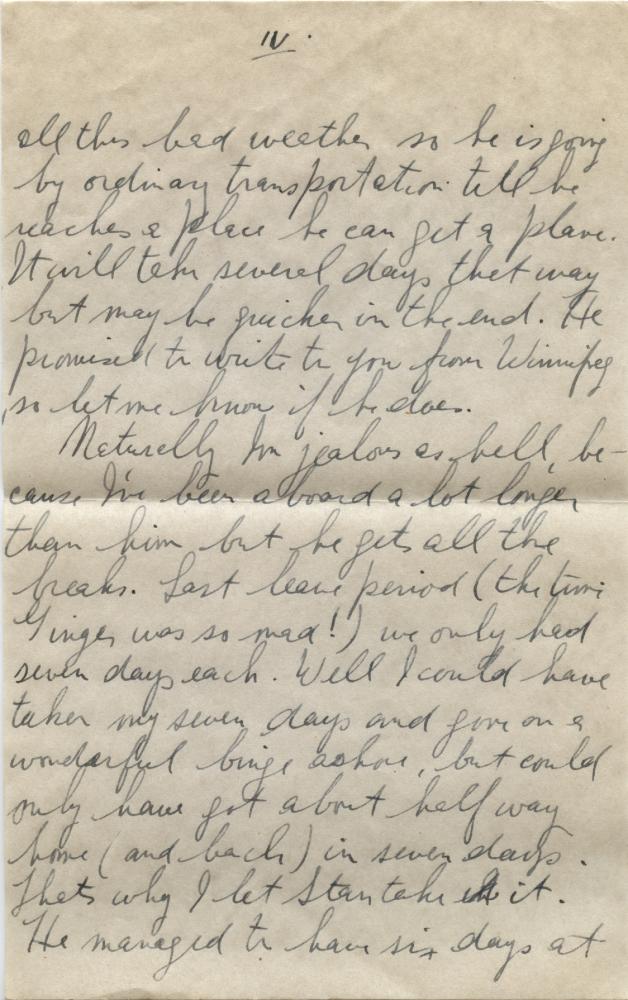 IV.
all this bad weather so he is going
by ordinary transportation till he
reaches a place he can get a plane.
It will take several days that way
but may be quicker in the end. He
promised to write to you from Winnipeg
so let me know if he does.
Naturally Im jealous as hell, be-
cause I've been aboard a lot longer
than him but he gets all the
breaks. Last leave period (the time
Ginger was so mad!) we only had
seven days each. Well I could have
taken my seven days and gone on a
wonderful binge ashore, but could
only have got about half way
home (and back) in seven days.
Thats why I let Stan take it.
He managed to have six days at